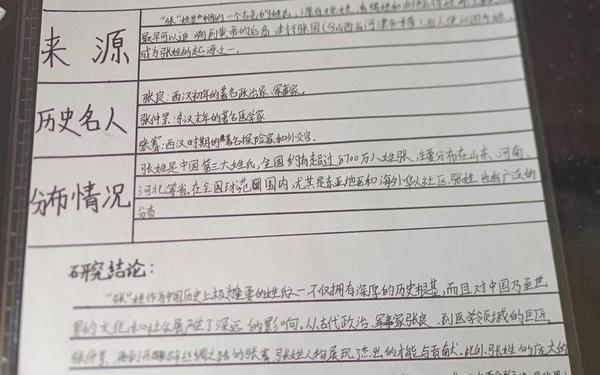 来源
"张"姓是中国的一个古老的姓氏
最早可以追溯到黄帝的后裔
成为张姓的起源之一。
历史名人
张良:西汉初年的著名政治家、军事家。
张仲景:东汉末年的著名医学家
张骞:西汉时期的著名探险家和外交官。
分布情况
张姓是中国第三大姓氏,全国约有超过8700万人姓张,主要分布在山东、河南、
河北等省。在全球范围国内,尤其是东亚地区和海外华人社区,张姓也有广泛的
分布
研究结论:
"张"姓作为中国历史上极为重要的姓氏之一不仅拥有深厚的历史根基,而且对中国乃至世
界的文化和社会发展产生了深远的影响。从古代政治、军事家张良,到医学领域的巨匠
张仲景,再到开辟丝绸之路的张骞,张姓人物展现了杰出的才能与贡献。此外,张姓的庞大的